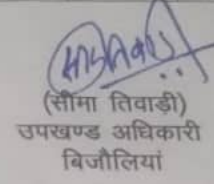 (सीमा तिवाड़ी)
उपखण्ड अधिकारी
बिजौलियां